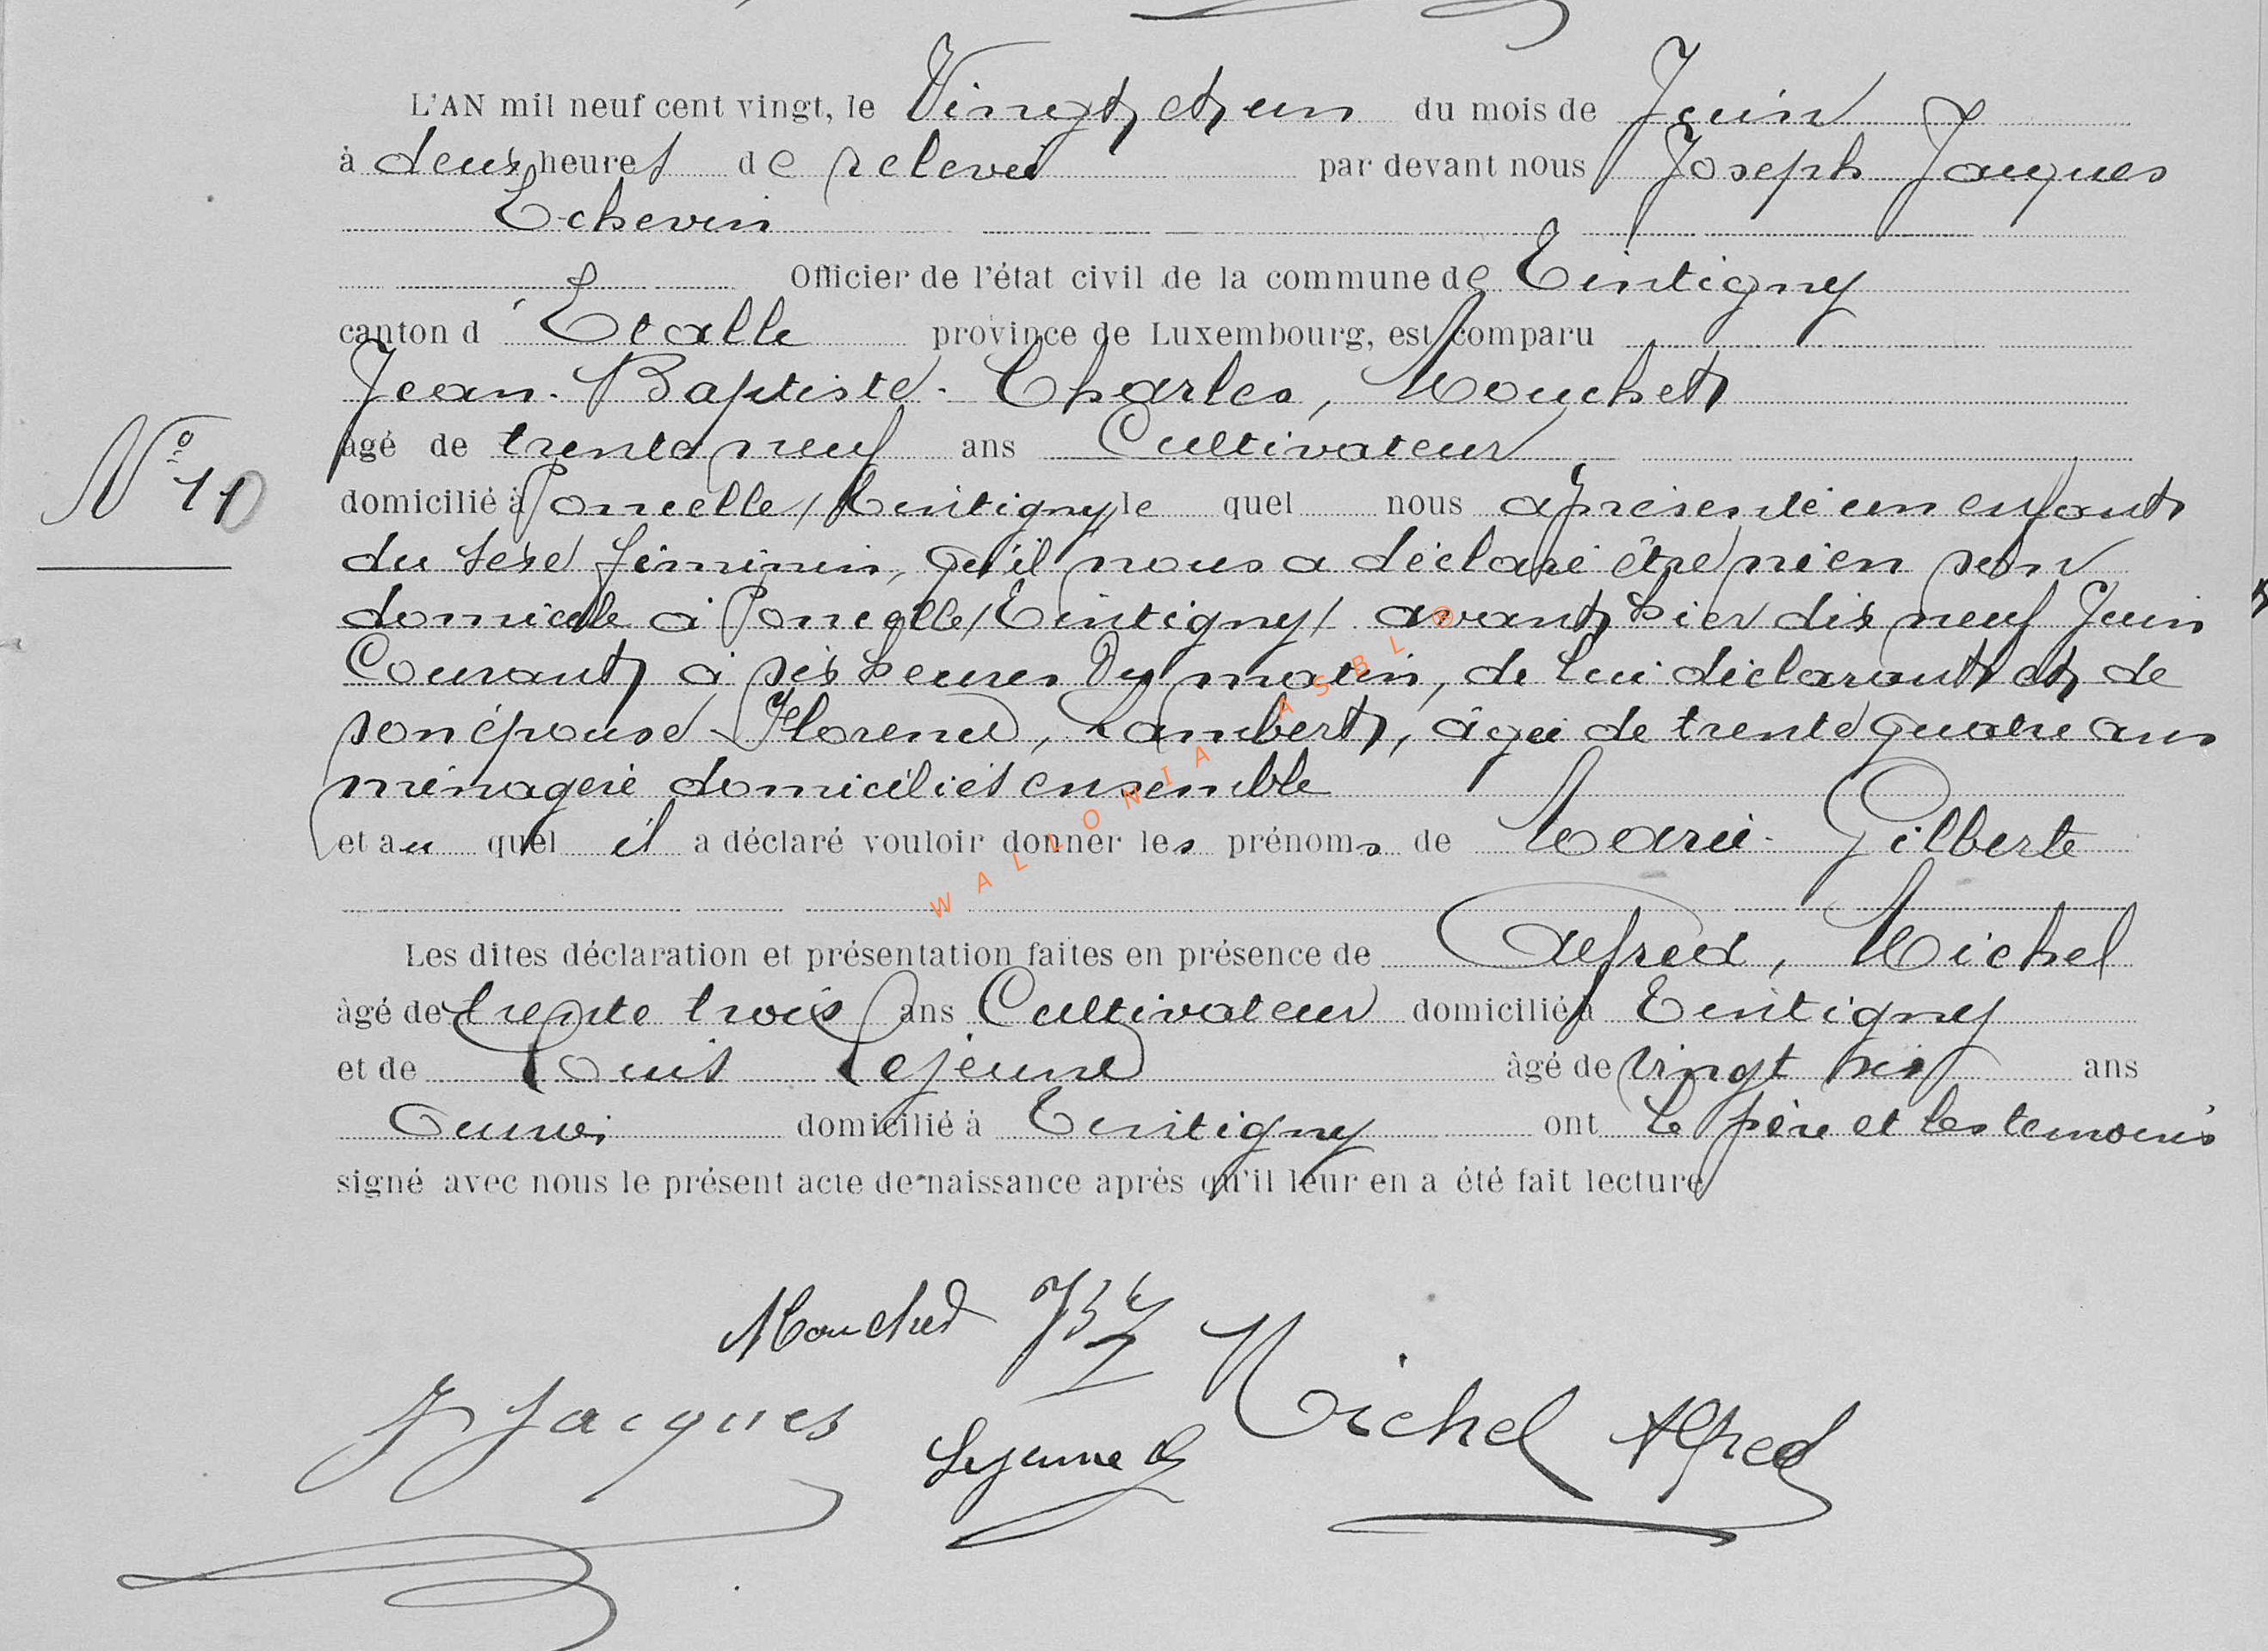 L'AN mil neuf cent vingt, le Vingt et un du mois de Juin
à deux heures de relevée par devant nous Joseph Jacques
Echevin
Officier de l'état civil de la commune de Tintigny
canton d'Etalle province de Luxembourg, est comparu
Jean-Baptiste-Charles, Mouchet
âgé de trente neuf ans Cultivateur
domicilié à Poncelle /Tintigny/ le quel nous a présenté un enfant
du sexe féminin, qu'il nous a déclaré être né en son
domicile à Poncelle /Tintigny/ avant hier dix neuf Juin
Courant à six heures du matin, de lui déclarant et de
son épouse Florence, Lambert, âgée de trente quatre ans
ménagère domiciliés ensemble
et au quel il a déclaré vouloir donner les prénoms de Marie-Gilberte
Les dites déclaration et présentation faites en présence de Alfred, Michel
âgé de trente trois ans Cultivateur domicilié à Tintigny
N° 10
et de Louis Lejeune âgé de vingt six ans
domicilié à Tintigny ont le père et les témoins
signé avec nous le présent acte de naissance après qu'il leur en a été fait lecture
Mouchet
J Jacques
Lejeune L
Michel Alfred
WALLONIA ASBL ®